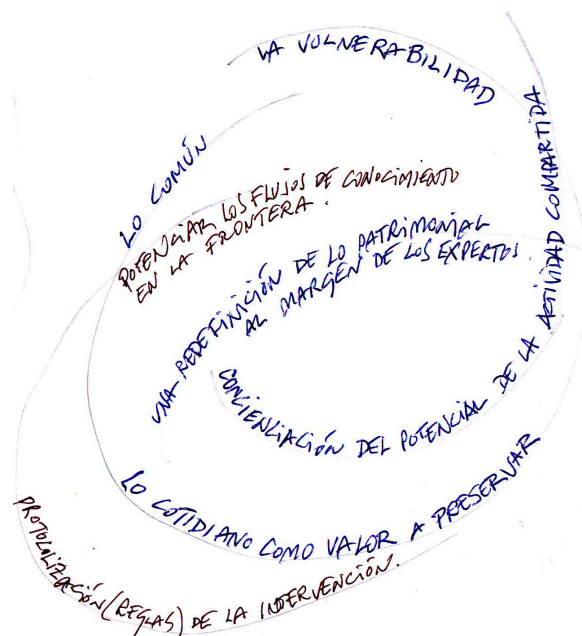 LA VULNERABILIDAD
LO COMÚN
POTENCIAR LOS FLUJOS DE CONOCIMIENTO
EN LA FRONTERA.
UNA REDEFINICIÓN DE LO PATRIMONIAL
AL MARGEN DE LOS EXPERTOS.
CONCIENCIACIÓN DEL POTENCIAL DE LA ACTIVIDAD COMPARTIDA
LO COTIDIANO COMO VALOR A PRESERVAR
PROTOCOLIZACIÓN (REGLAS) DE LA INTERVENCIÓN.